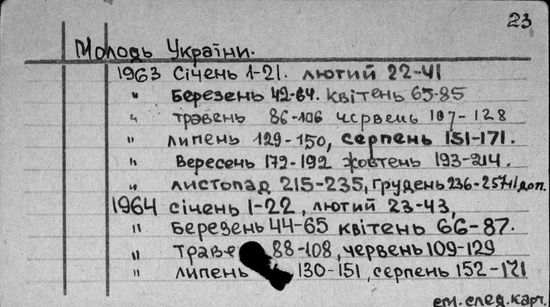 23
Молодь України.
1963 Січень 1-21. лютий 22-41
" Березень 42-64. квітень 65-85
" травень 86-106 червень 107-128
" липень 129-150, серпень 151-171.
" Вересень 172-192 жовтень 193-214.
" листопад 215-235, грудень 236-257+1 доп.
1964 січень 1-22, лютий 23-43,
" Березень 44-65 квітень 66-87.
" траве 88-108, червень 109-129
" липень 130-151, серпень 152-171
см. след. карт.